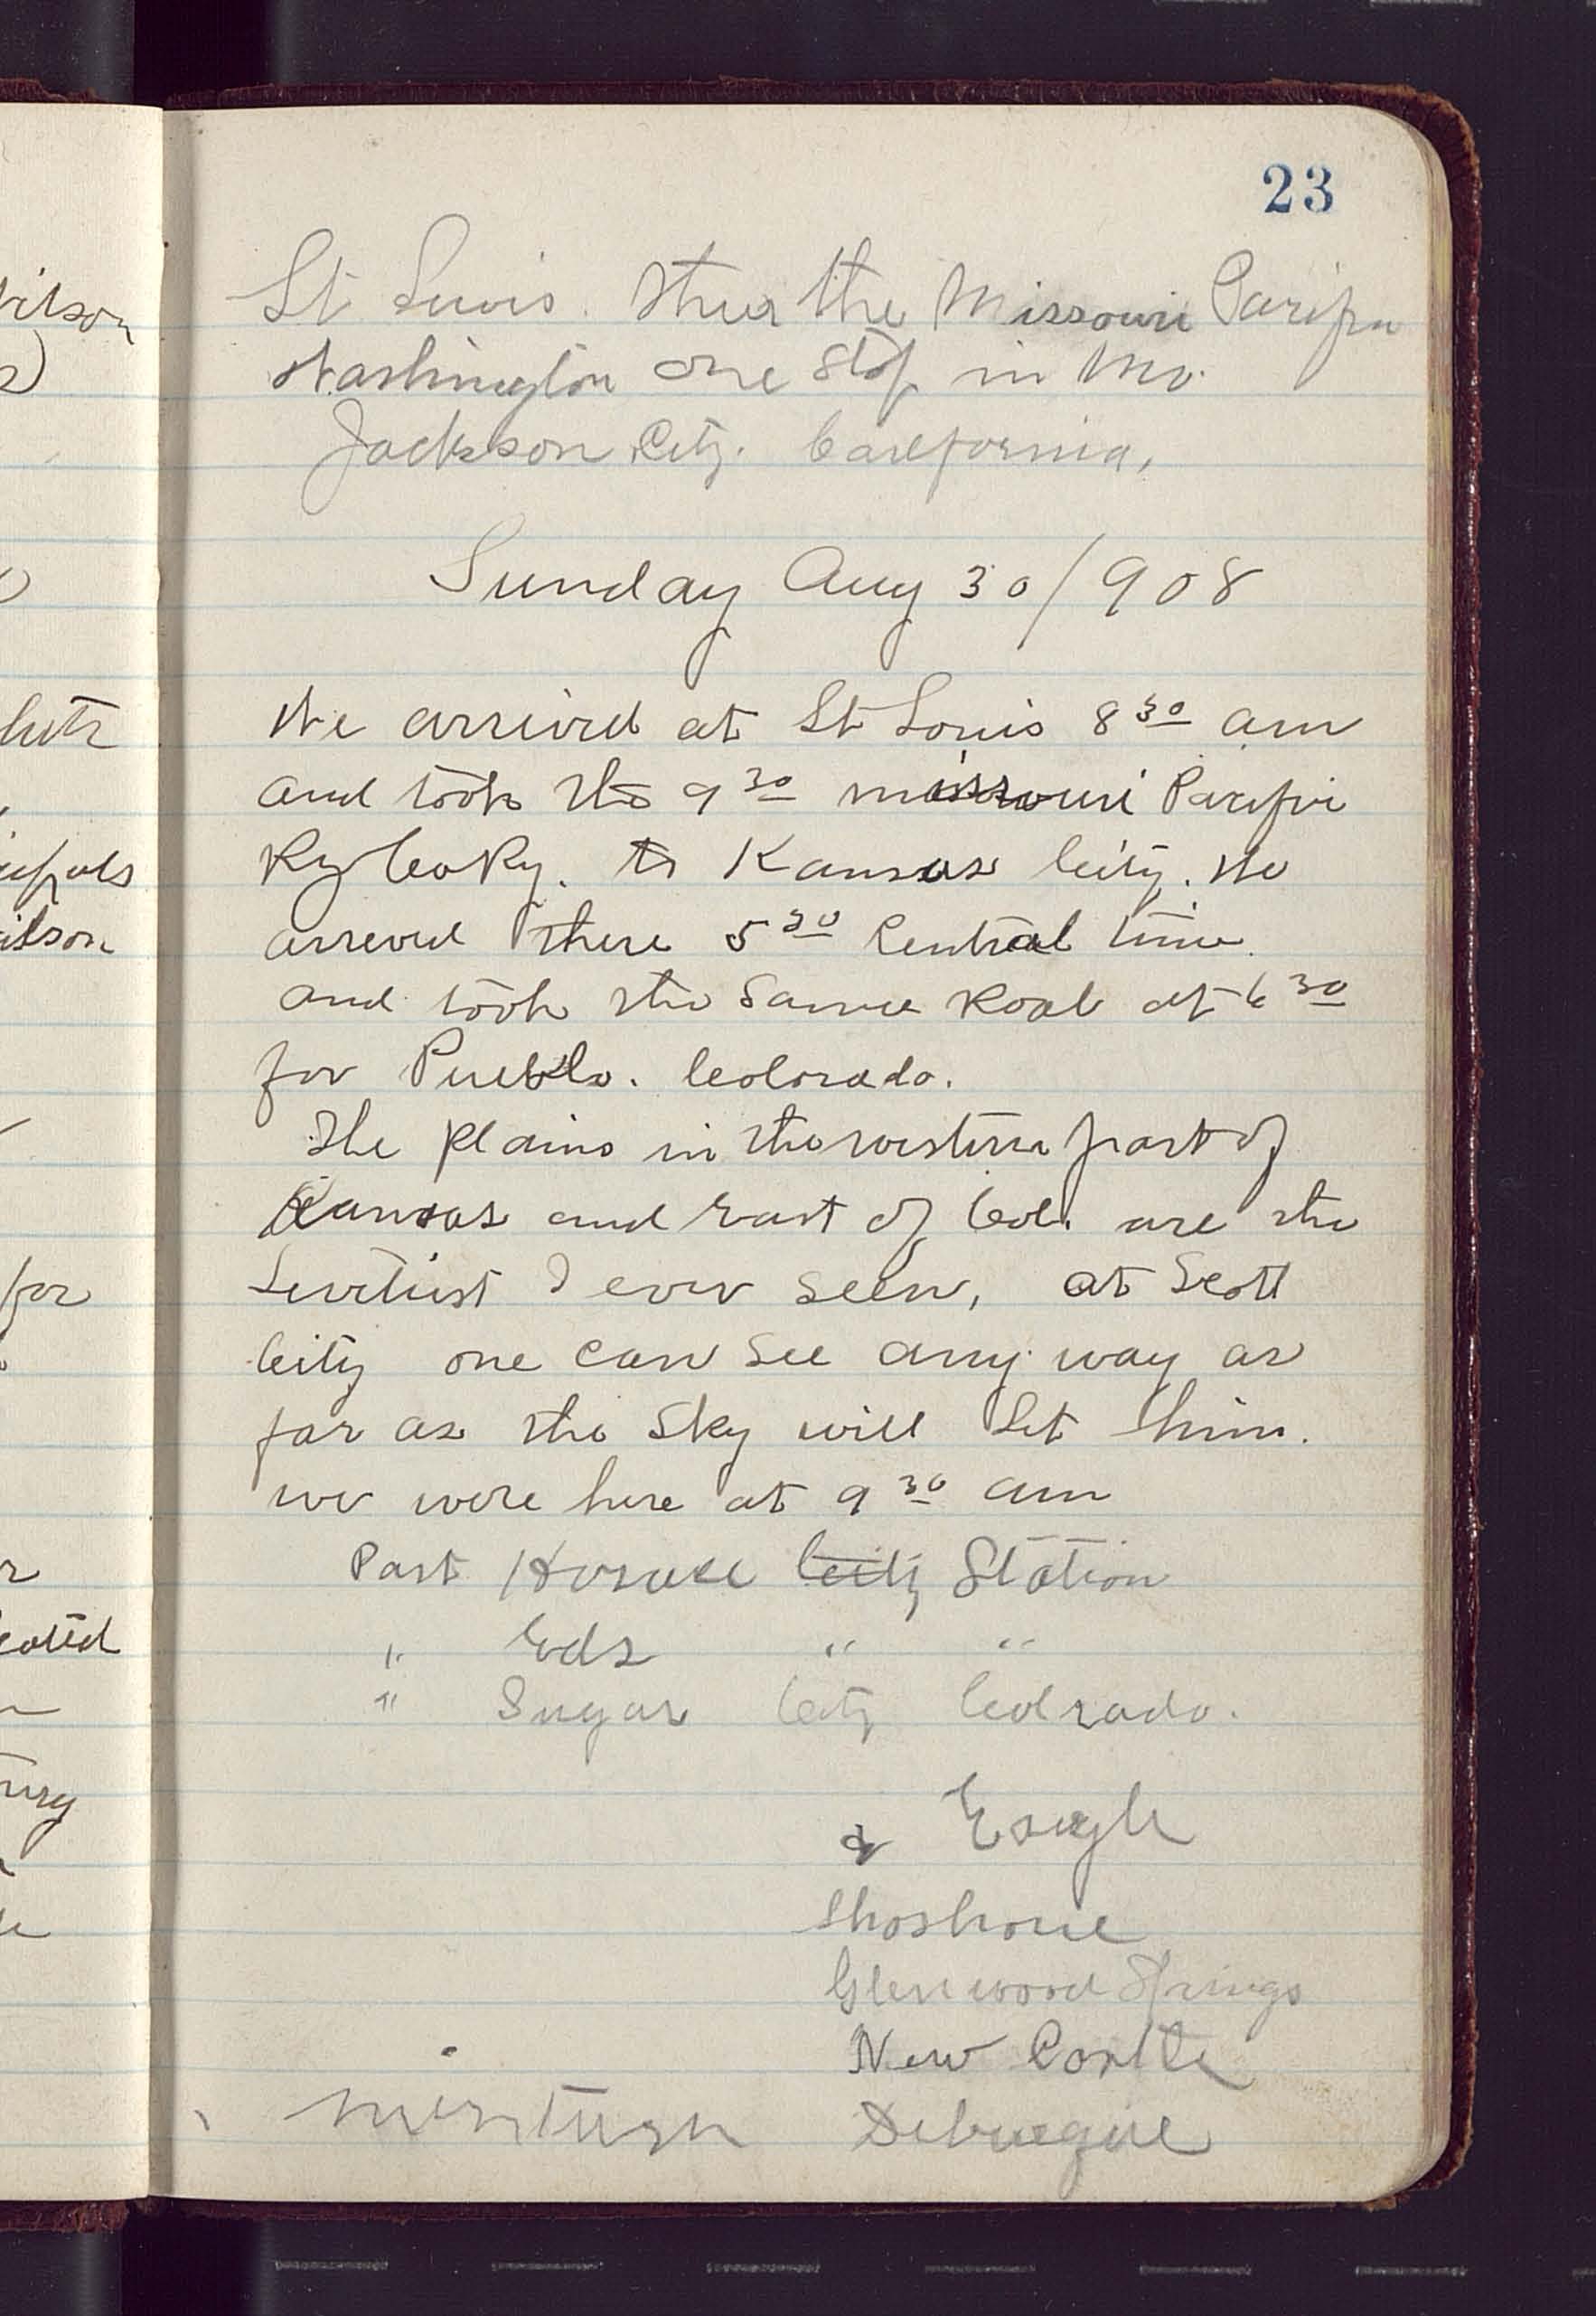 23
St Louis. then the Missouri Pacific
Washington one stop in Mo.
Jackson City. California,
Sunday Aug 30/908
We arrived at St Louis 8 30 am
and took the 9 30 missouri Pacific
Ry to Kansas City. We
arrived there 5 30 Central time.
and took the same Road at 6 30
for Pueblo. Colorado.
The plains in the western part of
Kansas and East of Col. are the
I ever seen, at Scott
City one can see any way as
far as the sky will let him.
we were here at 9 30 am
Past Horace City Station
" Eds " "
" Sugar City Colrado.
& Eagle
Shoshone
Glenwood Springs
New Castle
Debuegue